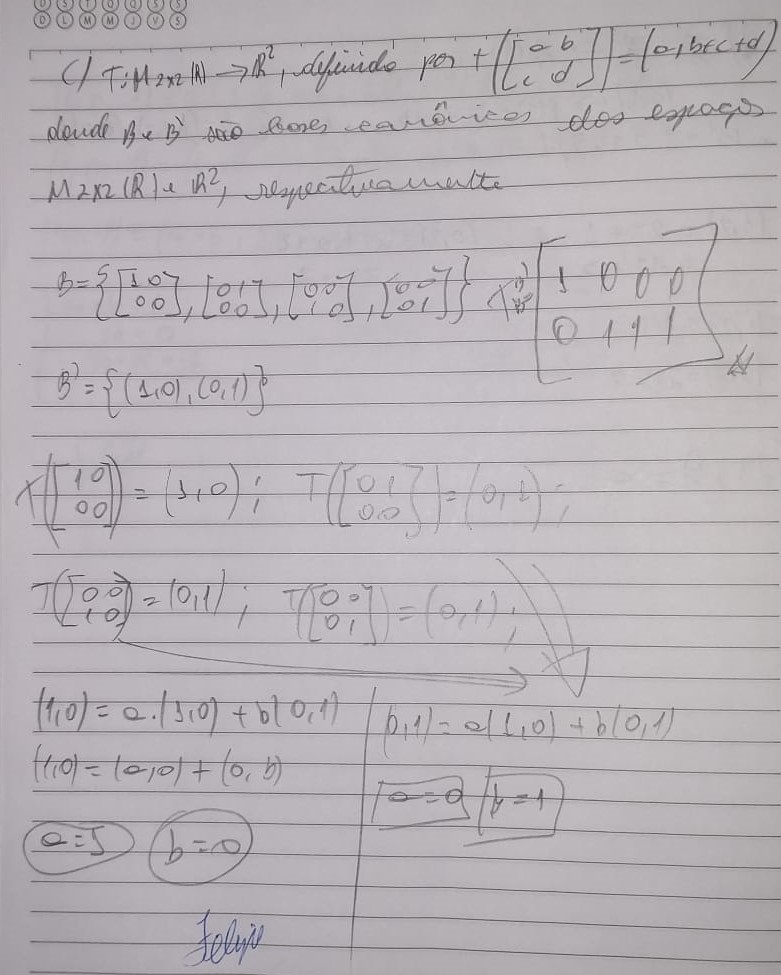 D S T Q Q S S
D L M M J V S
C) T: M2x2(R) → R², definido por T([a b; c d]) = (a, b+c+d)
donde B e B' são bases canônicas dos espaços
M2x2(R) e R², respectivamente
B = {[1 0; 0 0], [0 1; 0 0], [0 0; 1 0], [0 0; 0 1]} [1 0 0 0; 0 1 1 1]
B' = {(1,0), (0,1)}
T([1 0; 0 0]) = (1,0); T([0 1; 0 0]) = (0,1);
T([0 0; 1 0]) = (0,1); T([0 0; 0 1]) = (0,1);
(1,0) = a.(1,0) + b(0,1) | (0,1) = a(1,0) + b(0,1)
(1,0) = (a,0) + (0,b)
a=0 b=1
a=1 b=0
Felipe